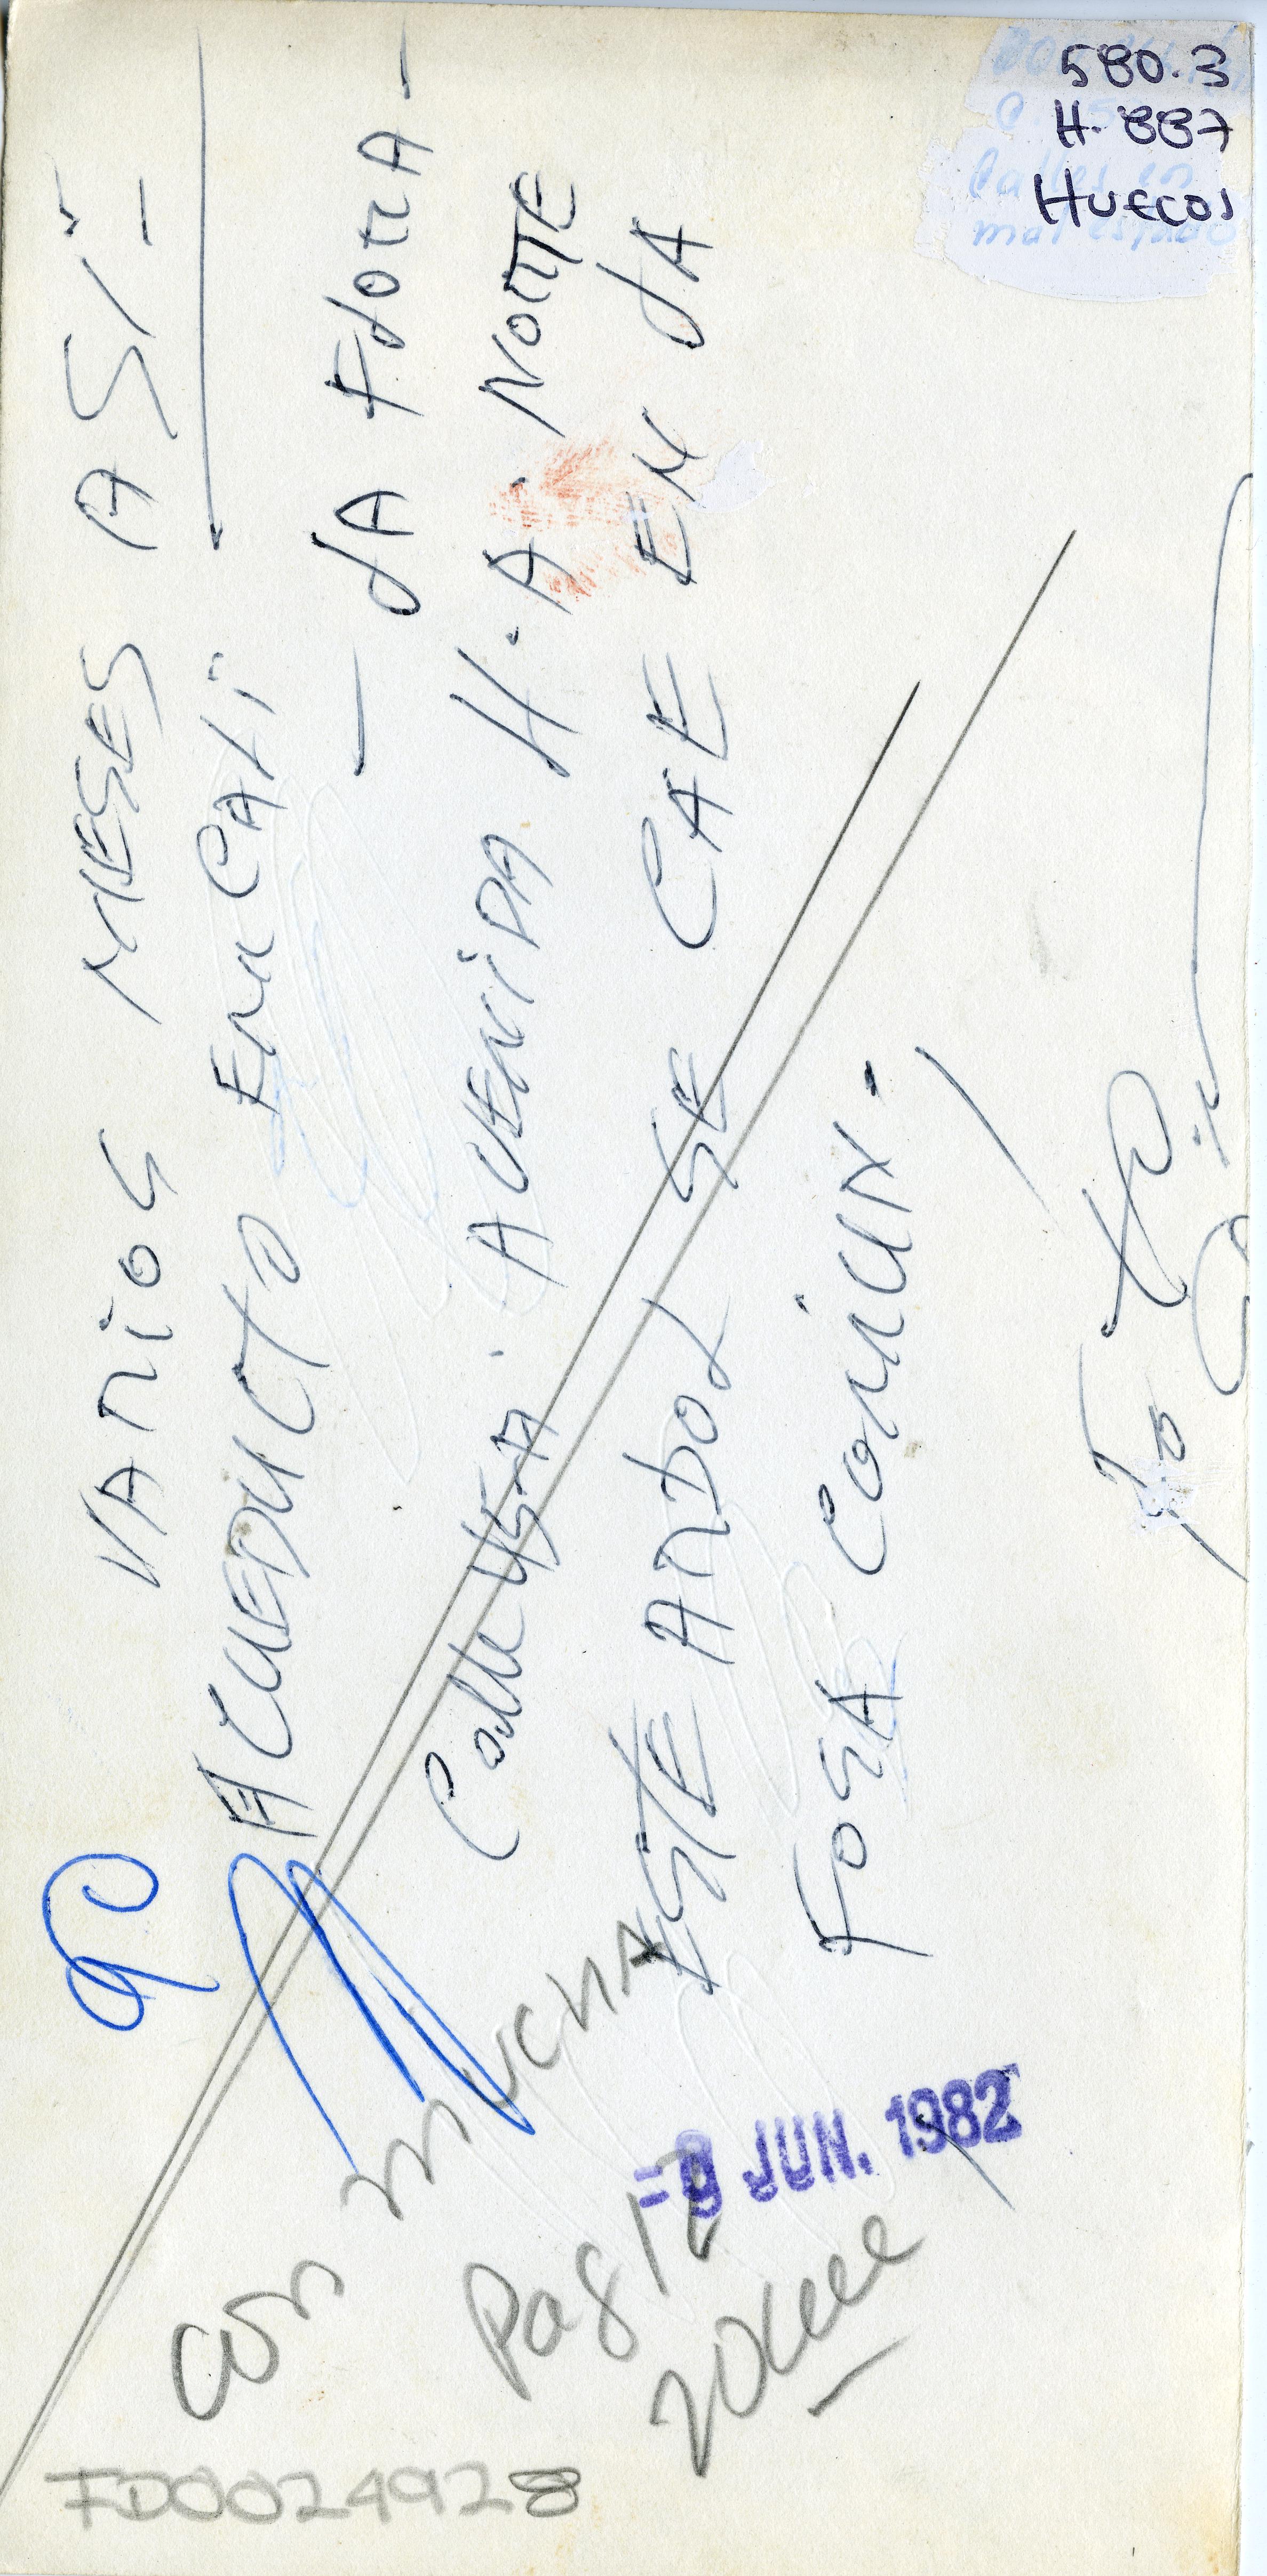 580.3
H. 887
HUECOS
Calles en
mal estado
VARIOS MESES ASÍ -
ACUEDUCTO EMCALI
- LA FLORA -
Calle 45.A. AVENIDA 4.A. NORTE
ESTE ARBOL SE CAE EN LA
FOSA COMÚN.
con mucha
Pag 12
20
- 9 JUN. 1982
FD0024928